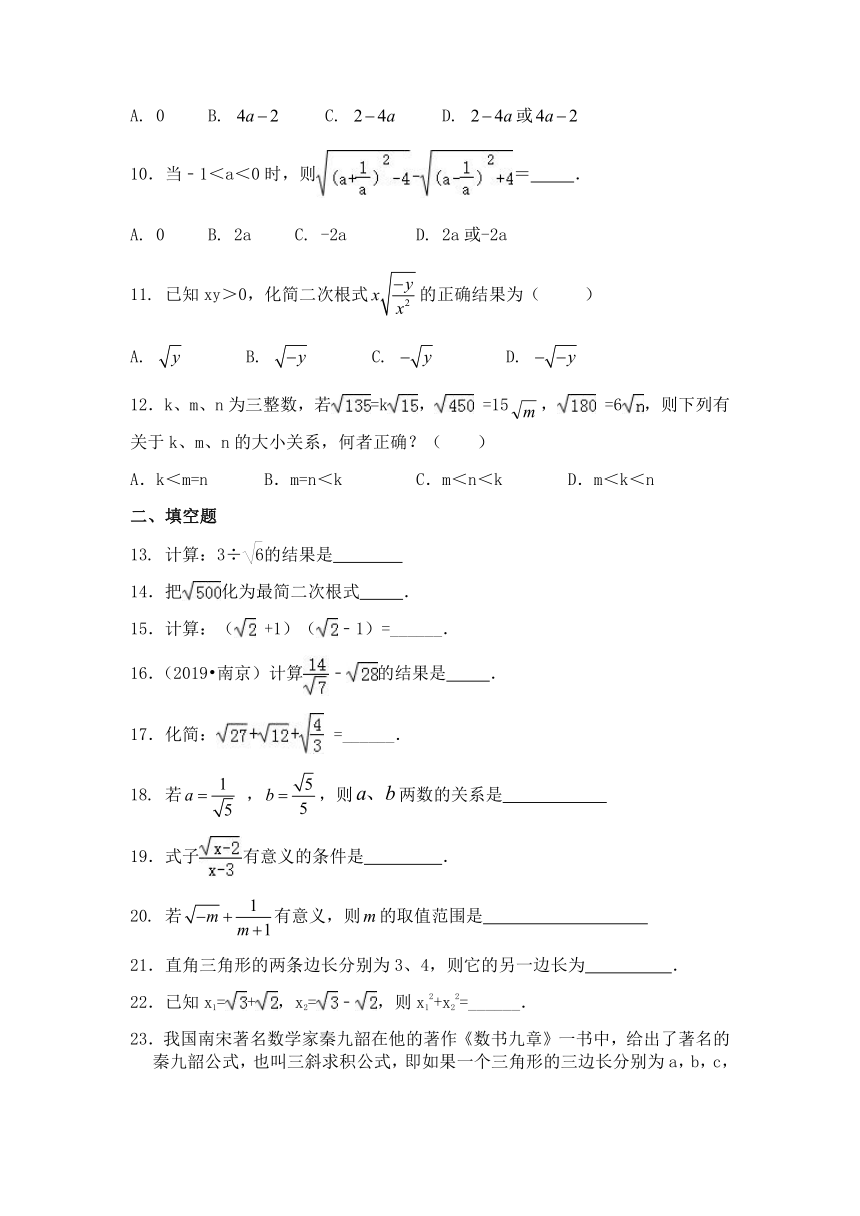 A. 0 B. 4a－2 C. 2－4a D. 2－4a或4a－2
10．当﹣1＜a＜0时，则√((a+1/a)²-4)-√((a-1/a)²+4)=____．
A. 0 B. 2a C. -2a D. 2a或-2a
11. 已知xy＞0，化简二次根式x√(－y/x²)的正确结果为（ ）
A. √y B. √－y C. －√y D. －√－y
12．k、m、n为三整数，若√135=k√15，√450 =15√m，√180 =6√n，则下列有
关于k、m、n的大小关系，何者正确？（ ）
A．k＜m=n B．m=n＜k C．m＜n＜k D．m＜k＜n
二、填空题
13. 计算：3÷√6的结果是________
14．把√500化为最简二次根式____．
15．计算：（√2 +1）（√2﹣1）=______．
16．（2019•南京）计算14/√7﹣√28的结果是____．
17．化简：√27+√12+√(4/3) =______．
18. 若a＝1/√5 ，b＝√5/5，则a、b两数的关系是____________
19．式子√(x-2)/(x-3)有意义的条件是________．
20. 若√－m＋1/(m＋1)有意义，则m的取值范围是____________________
21．直角三角形的两条边长分别为3、4，则它的另一边长为________．
22．已知x₁=√3+√2，x₂=√3﹣√2，则x₁²+x₂²=______．
23．我国南宋著名数学家秦九韶在他的著作《数书九章》一书中，给出了著名的
秦九韶公式，也叫三斜求积公式，即如果一个三角形的三边长分别为a，b，c，